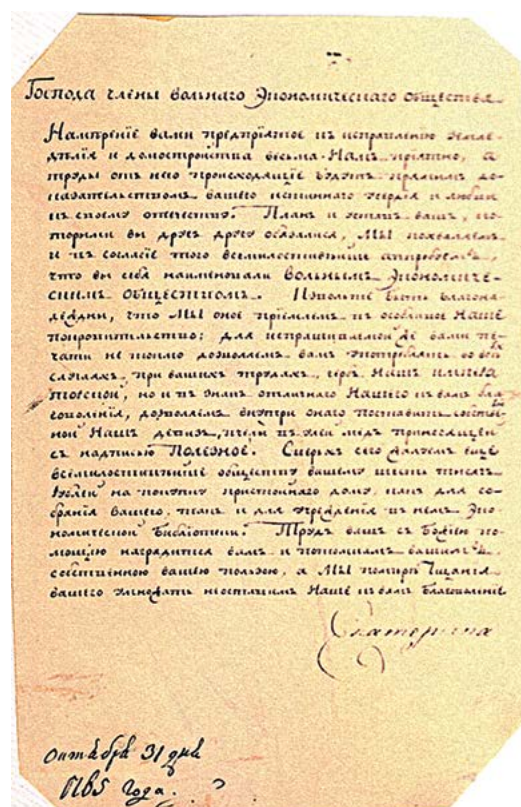 Господа члены вольнаго Экономическаго общества
Намѣренїе вами предпрїятое къ исправленїю земле-
дѣлїя и домостройства весьма Намъ прїятно, а
труды отъ него происходящїе будутъ прямымъ до-
казательствомъ вашего истиннаго усердїя и любви
къ своему отечеству. Планъ и уставъ вашъ, ко-
торыми вы другъ другу обязалися, Мы похваляемъ
и въ согласїе того всемилостивѣйше апробуемъ,
что вы себя наименовали Вольнымъ Экономиче-
скимъ обществомъ. Извольте быть благона-
дежны, что Мы оное прїемлемъ въ особливое Наше
покровительство; для испрашиваемой же вами пе-
чати не токмо дозволяемъ вамъ употреблять во всѣхъ
случаяхъ при вашихъ трудахъ, гербъ Нашъ импера-
торской, но и въ знакъ отличнаго Нашего къ вамъ бла-
говоленїя, дозволяемъ внутри онаго поставить собствен-
ной Нашъ девизъ, пчелы въ улей медъ приносящей
съ надписью Полезное. Сверхъ сего даемъ еще
всемилостивѣйше обществу вашему шесть тысячъ
рублей на покупку пристойнаго дому, какъ для со-
бранїя вашего, такъ и для учрежденїя въ немъ Эко-
номической Библїотеки. Трудъ вашъ съ Божїею по-
мощїю наградится вамъ и потомкамъ вашимъ
собственною вашею пользою, а Мы по мѣрѣ тщанїя
вашего умножать не оставимъ Наше къ вамъ благоволенїе
Екатерина
Октября 31 дня
1765 года.